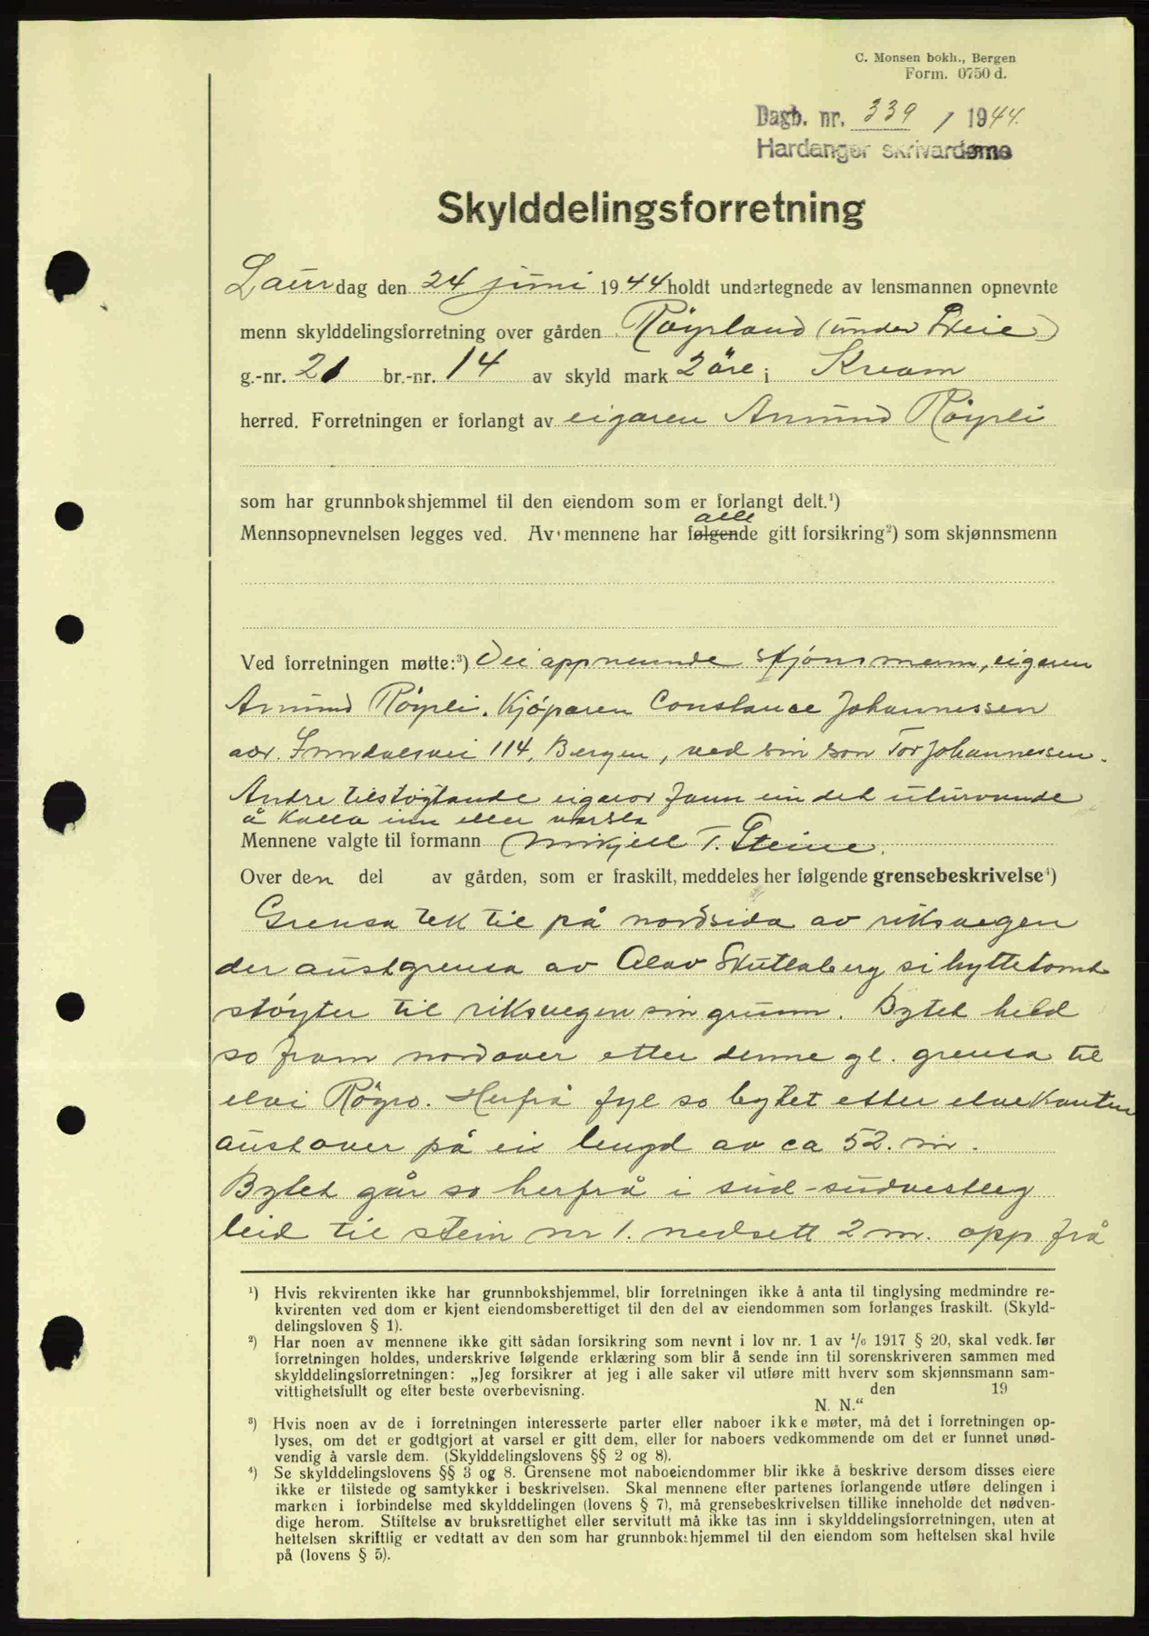 C. Monsen bokh., Bergen
Form. 0750 d.
Dagb. nr. 339 / 1944.
Hardanger skrivardøme
Skylddelingsforretning
Laurdag den 24 juni 1944 holdt undertegnede av lensmannen opnevnte
menn skylddelingsforretning over gården Røyrland (under Steine)
g.-nr. 21 br.-nr. 14 av skyld mark 2 öre i Kvam
herred. Forretningen er forlangt av eigaren Amund Røyrli
som har grunnbokshjemmel til den eiendom som er forlangt delt.¹)
alle
Mennsopnevnelsen legges ved. Av mennene har følgende gitt forsikring²) som skjønnsmenn
Ved forretningen møtte:³) Dei appnemnde skjönsmenn, eigaren
Amund Røyrli. Kjøparen Constance Johannessen
adr. 114, Bergen, ved sin son Tor Johannessen.
Andre tilstøytande eigarar fann ein det uturvande
å kalla inn eller varsla
Mennene valgte til formann Mikjell T. Steine.
Over den del av gården, som er fraskilt, meddeles her følgende grensebeskrivelse⁴)
Grensa tek til på nordsida av riksvegen
der austgrensa av Olav Skutlaberg si hyttetomt
støyter til riksvegen sin grunn. Bytet held
so fram nordover etter denne gl. grensa til
elvi Røyro. Herfrå fyl so bytet etter elvekanten
austover på ei lengd av ca 52. m.
Bytet går so herfrå i süd-südvestleg
leid til stein nr 1. nedsett 2 m. opp frå
¹) Hvis rekvirenten ikke har grunnbokshjemmel, blir forretningen ikke å anta til tinglysing medmindre re-
kvirenten ved dom er kjent eiendomsberettiget til den del av eiendommen som forlanges fraskilt. (Skyld-
delingsloven § 1).
²) Har noen av mennene ikke gitt sådan forsikring som nevnt i lov nr. 1 av ¹/₆ 1917 § 20, skal vedk. før
forretningen holdes, underskrive følgende erklæring som blir å sende inn til sorenskriveren sammen med
skylddelingsforretningen: „Jeg forsikrer at jeg i alle saker vil utføre mitt hverv som skjønnsmann sam-
vittighetsfullt og efter beste overbevisning. den 19
N. N.“
³) Hvis noen av de i forretningen interesserte parter eller naboer ikke møter, må det i forretningen op-
lyses, om det er godtgjort at varsel er gitt dem, eller for naboers vedkommende om det er funnet unød-
vendig å varsle dem. (Skylddelingslovens §§ 2 og 8).
⁴) Se skylddelingslovens §§ 3 og 8. Grensene mot naboeiendommer blir ikke å beskrive dersom disses eiere
ikke er tilstede og samtykker i beskrivelsen. Skal mennene efter partenes forlangende utføre delingen i
marken i forbindelse med skylddelingen (lovens § 7), må grensebeskrivelsen tillike inneholde det nødven-
dige herom. Stiftelse av bruksrettighet eller servitutt må ikke tas inn i skylddelingsforretningen, uten at
heftelsen skriftlig er vedtatt av den som har grunnbokshjemmel til den eiendom som heftelsen skal hvile
på (lovens § 5).